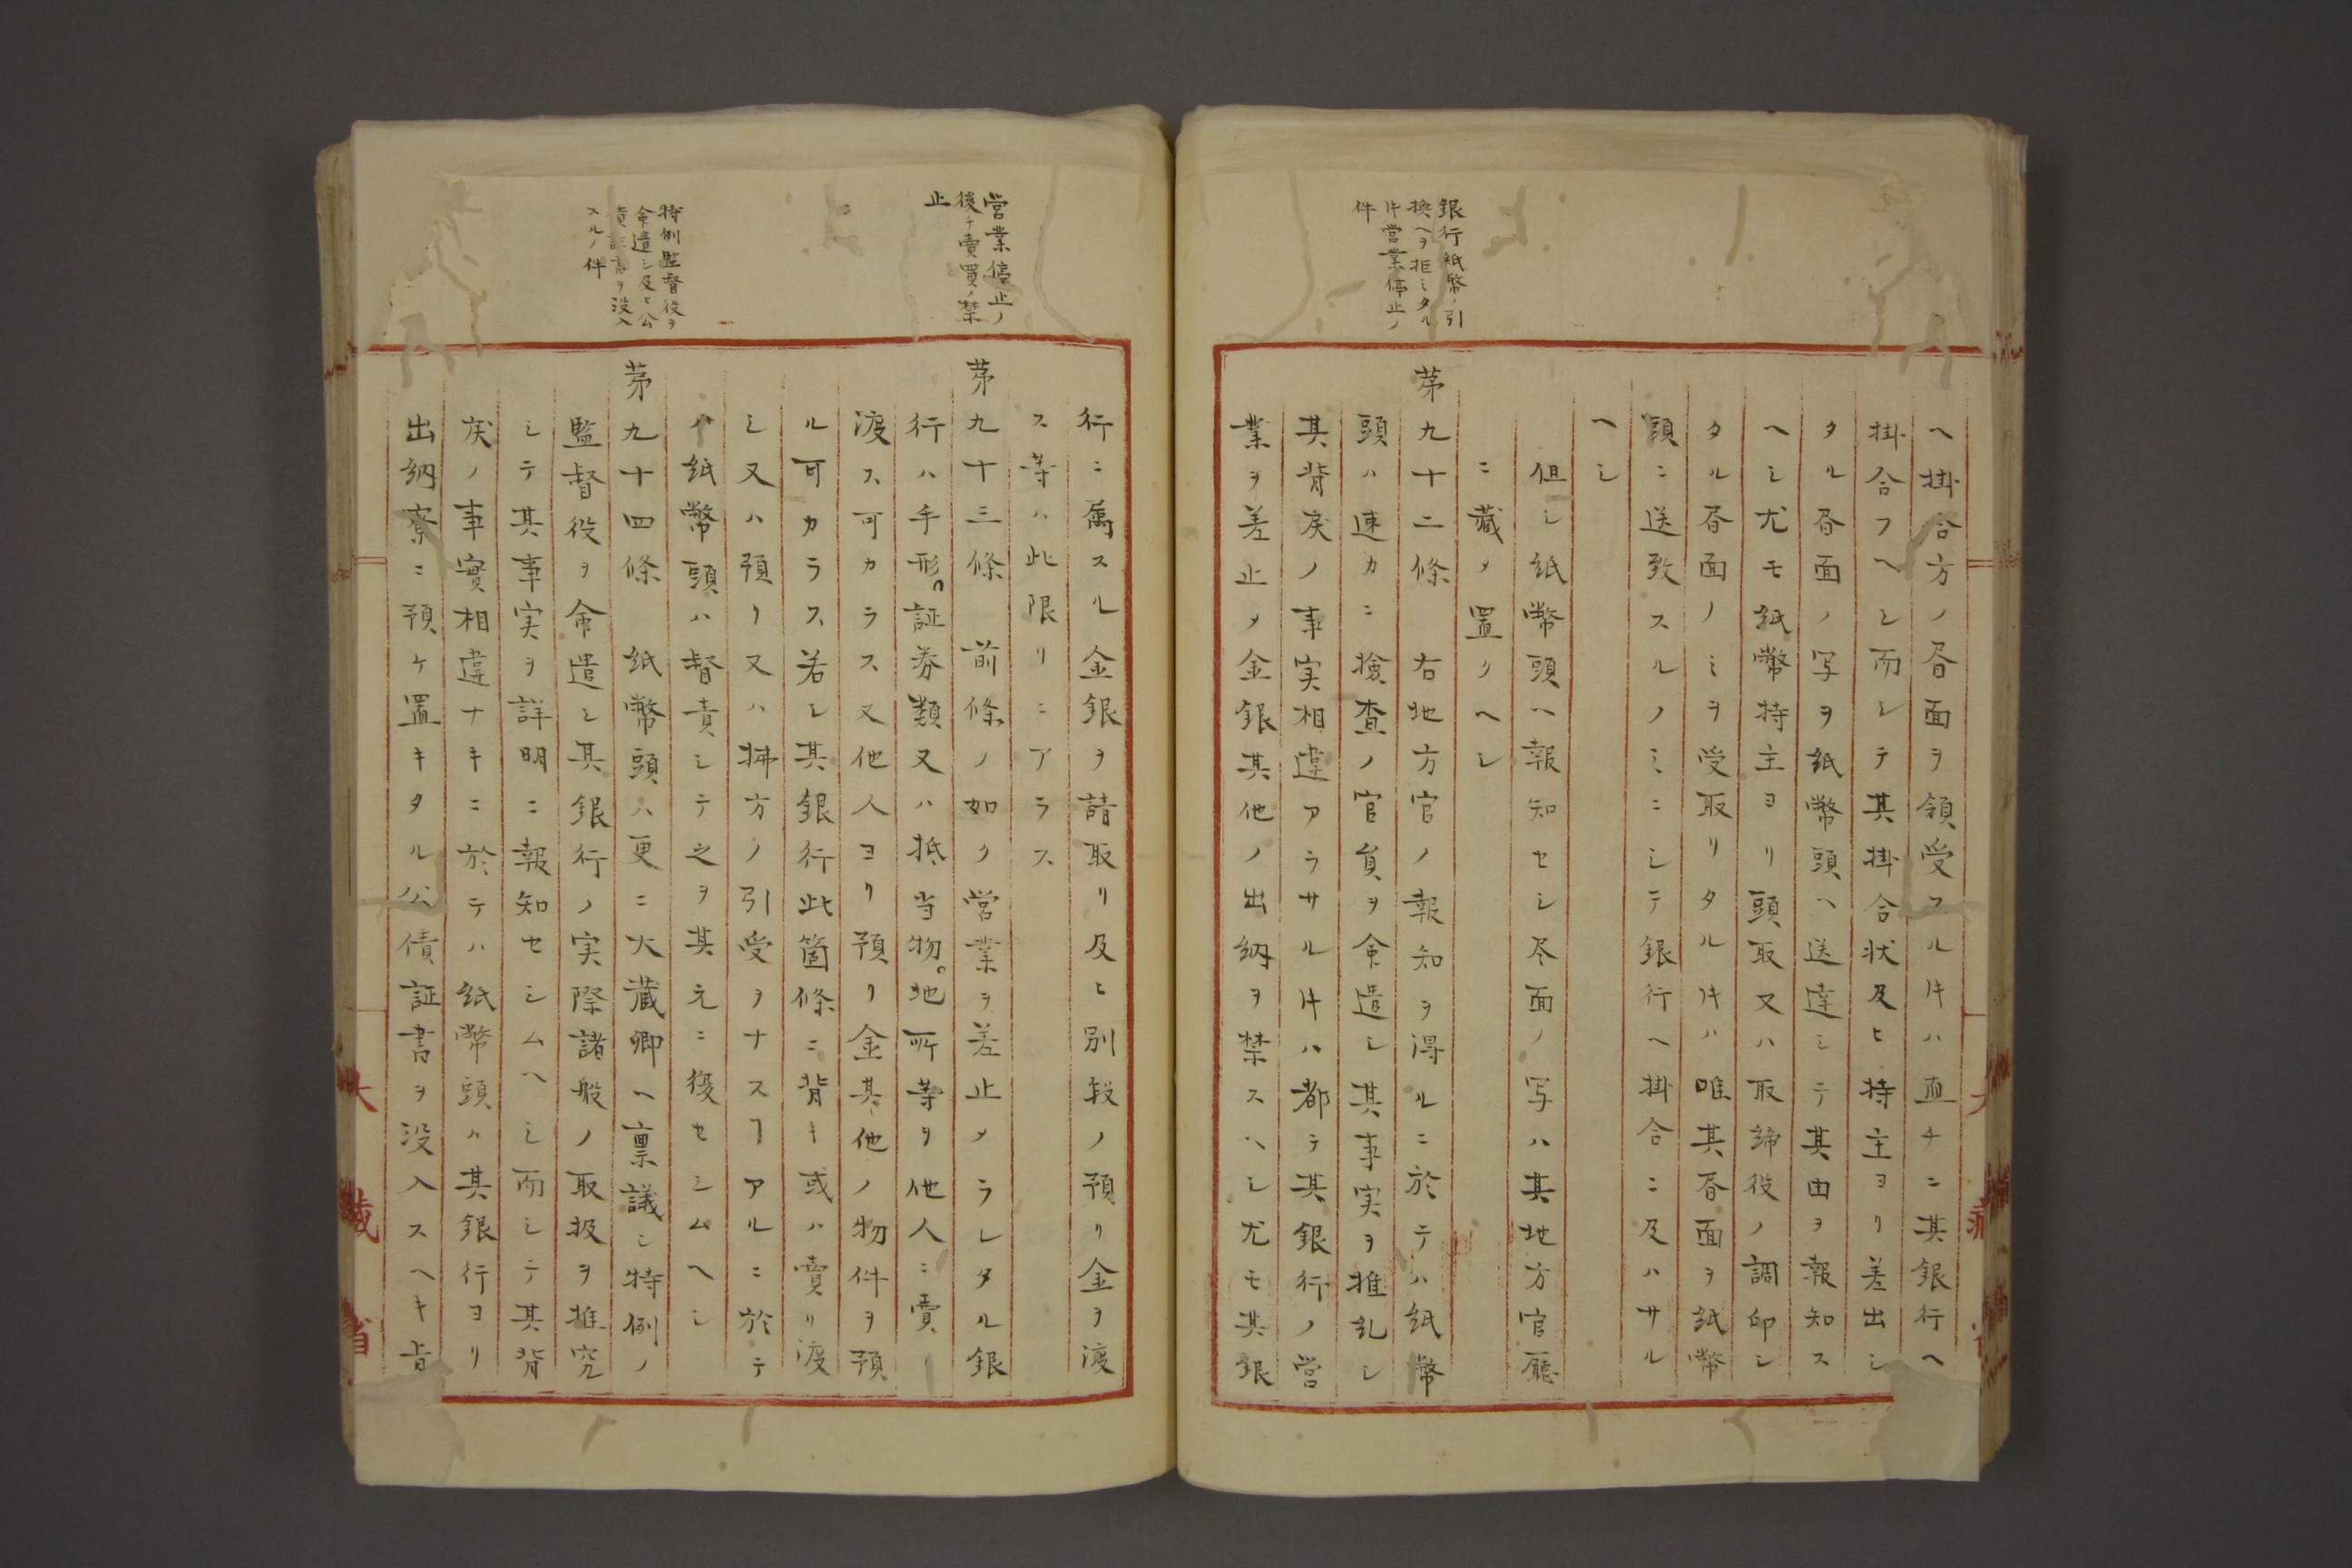 銀行紙幣ノ引
換ヘヲ拒ミタル
𪜈営業停止ノ
件
ヘ掛合方ノ昏面ヲ領受スル𪜈ハ直チニ其銀行ヘ
掛合フヘシ而シテ其掛合状及ヒ持主ヨリ差出シ
タル昏面ノ写ヲ紙幣頭ヘ送達シテ其由ヲ報知ス
ヘシ尤モ紙幣持主ヨリ頭取又ハ取締役ノ調印シ
タル昏面ノミヲ受取リタル𪜈ハ唯其昏面ヲ紙幣
頭ニ送致スルノミニシテ銀行ヘ掛合ニ及ハサル
ヘシ
但シ紙幣頭ヘ報知セシ尽面ノ写ハ其地方官廳
ニ藏メ置クヘシ
苐九十二條　右地方官ノ報知ヲ得ルニ於テハ紙幣
頭ハ速カニ撿査ノ官負ヲ命遣シ其事実ヲ推糺シ
其背戻ノ事実相違アラサル𪜈ハ都テ其銀行ノ営
業ヲ差止メ金銀其他ノ出納ヲ禁スヘシ尤モ其銀
大藏省
営業停止ノ
後チ賣買ノ禁
止
特例監督役ヲ
命遣シ及ヒ公
債証書ヲ没入
スルノ件
行ニ属スル金銀ヲ請取リ及ヒ別段ノ預リ金ヲ渡
ス等ハ此限リニアラス
苐九十三條　前條ノ如ク営業ヲ差止メラレタル銀
行ハ手形。証券類又ハ抵当物。地所等ヲ他人ニ賣
渡ス可カラス又他人ヨリ預リ金其他ノ物件ヲ預
ル可カラス若シ其銀行此箇條ニ背キ或ハ賣リ渡
シ又ハ預リ又ハ拂方ノ引受ヲナスヿアルニ於テ
ハ紙幣頭ハ督責シテ之ヲ其元ニ復セシムヘシ
苐九十四條　紙幣頭ハ更ニ大藏卿ヘ稟議シ特例ノ
監督役ヲ命遣シ其銀行ノ実際諸般ノ取扱ヲ推究
シテ其事実ヲ詳明ニ報知セシムヘシ而シテ其背
戻ノ事實相違ナキニ於テハ紙幣頭ハ其銀行ヨリ
出納寮ニ預ケ置キタル公債証書ヲ没入スヘキ旨
大藏省